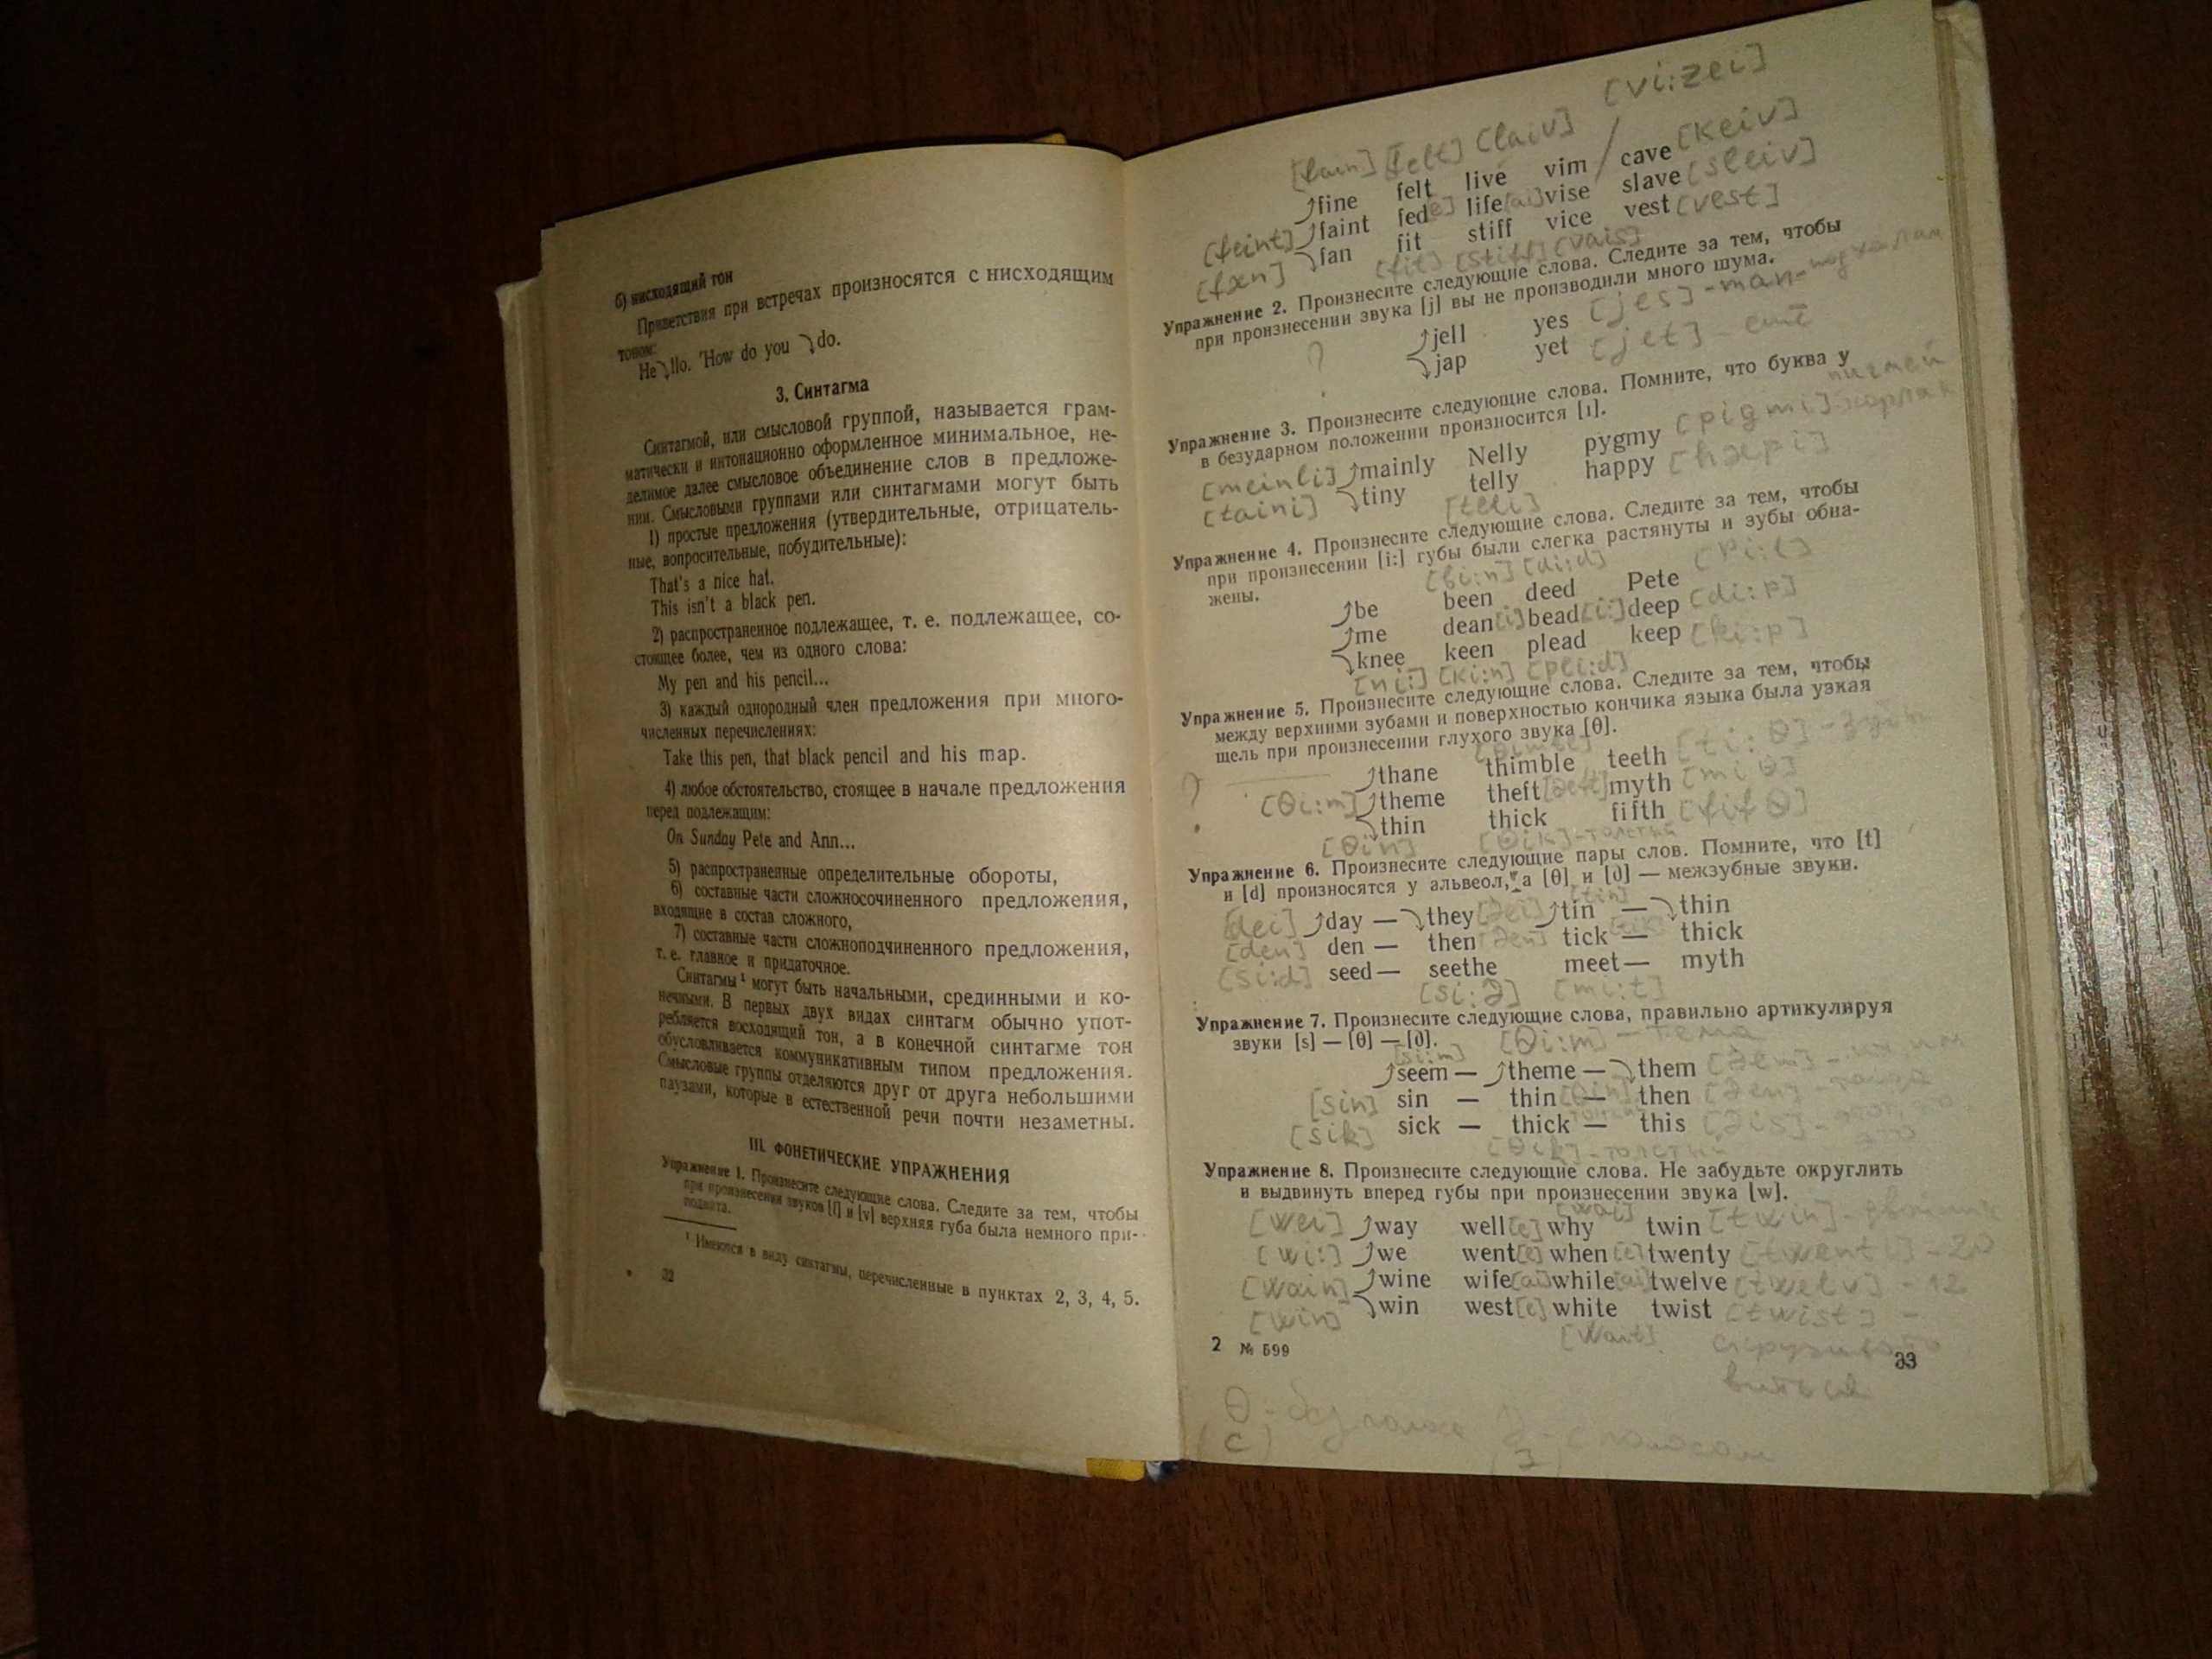 б) нисходящий тон
Приветствия при встречах произносятся с нисходящим
тоном:
He⤵llo. 'How do you ⤵do.
3. Синтагма
Синтагмой, или смысловой группой, называется грам-
матически и интонационно оформленное минимальное, не-
делимое далее смысловое объединение слов в предложе-
нии. Смысловыми группами или синтагмами могут быть
1) простые предложения (утвердительные, отрицатель-
ные, вопросительные, побудительные):
That's a nice hat.
This isn't a black pen.
2) распространенное подлежащее, т. е. подлежащее, со-
стоящее более, чем из одного слова:
My pen and his pencil...
3) каждый однородный член предложения при много-
численных перечислениях:
Take this pen, that black pencil and his map.
4) любое обстоятельство, стоящее в начале предложения
перед подлежащим:
On Sunday Pete and Ann...
5) распространенные определительные обороты,
6) составные части сложносочиненного предложения,
входящие в состав сложного,
7) составные части сложноподчиненного предложения,
т. е. главное и придаточное.
Синтагмы ¹ могут быть начальными, срединными и ко-
нечными. В первых двух видах синтагм обычно упот-
ребляется восходящий тон, а в конечной синтагме тон
обусловливается коммуникативным типом предложения.
Смысловые группы отделяются друг от друга небольшими
паузами, которые в естественной речи почти незаметны.
III. ФОНЕТИЧЕСКИЕ УПРАЖНЕНИЯ
Упражнение 1. Произнесите следующие слова. Следите за тем, чтобы
при произнесении звуков [f] и [v] верхняя губа была немного при-
поднята.
¹ Имеются в виду синтагмы, перечисленные в пунктах 2, 3, 4, 5.
32
[vi:zei]
[fain] [felt] [laiv]
⤴fine felt live vim cave [keiv]
⤴faint fed [e] life [ai] vise slave [sleiv]
[feint] ⤵fan fit stiff vice vest [vest]
[fæn] [fit] [stiff] [vais]
Упражнение 2. Произнесите следующие слова. Следите за тем, чтобы
при произнесении звука [j] вы не производили много шума.
⤴jell yes [jes]
? ⤵jap yet [jet] - ещё
Упражнение 3. Произнесите следующие слова. Помните, что буква y
в безударном положении произносится [ı].
[meinli] ⤴mainly Nelly pygmy [pigmi]
[taini] ⤵tiny telly happy [hæpi]
[teli]
Упражнение 4. Произнесите следующие слова. Следите за тем, чтобы
при произнесении [i:] губы были слегка растянуты и зубы обна-
жены.
[bi:n] [di:d]
⤴be been deed Pete
⤴me dean bead [i:] deep [di:p]
⤵knee keen plead keep [ki:p]
[ni:] [ki:n] [pli:d]
Упражнение 5. Произнесите следующие слова. Следите за тем, чтобы
между верхними зубами и поверхностью кончика языка была узкая
щель при произнесении глухого звука [θ].
? ⤴thane thimble teeth [ti:θ]
[θi:m] ⤴theme theft myth [miθ]
⤵thin thick fifth [fifθ]
[θin] [θik] - толстый
Упражнение 6. Произнесите следующие пары слов. Помните, что [t]
и [d] произносятся у альвеол, а [θ] и [ð] — межзубные звуки.
[dei] ⤴day — ⤵they [ðei] ⤴tin — ⤵thin
[den] den — then [ðen] tick — thick
[si:d] seed — seethe meet — myth
[si:ð] [mi:t]
Упражнение 7. Произнесите следующие слова, правильно артикулируя
звуки [s] — [θ] — [ð].
[si:m] [θi:m] - тема
⤴seem — ⤴theme — ⤵them [ðem]
[sin] sin — thin [θin] — then [ðen]
[sik] sick — thick — this [ðis]
[θik] - толстый
Упражнение 8. Произнесите следующие слова. Не забудьте округлить
и выдвинуть вперед губы при произнесении звука [w].
[wei] ⤴way well [e] why [wai] twin [twin]
[wi:] ⤴we went [e] when [e] twenty [twenti] - 20
[wain] ⤴wine wife [ai] while [ai] twelve [twelv] - 12
[win] ⤵win west [e] white twist [twist] -
[wait]
2 № 599
33
θ - без голоса ð - с голосом
(с) (з)